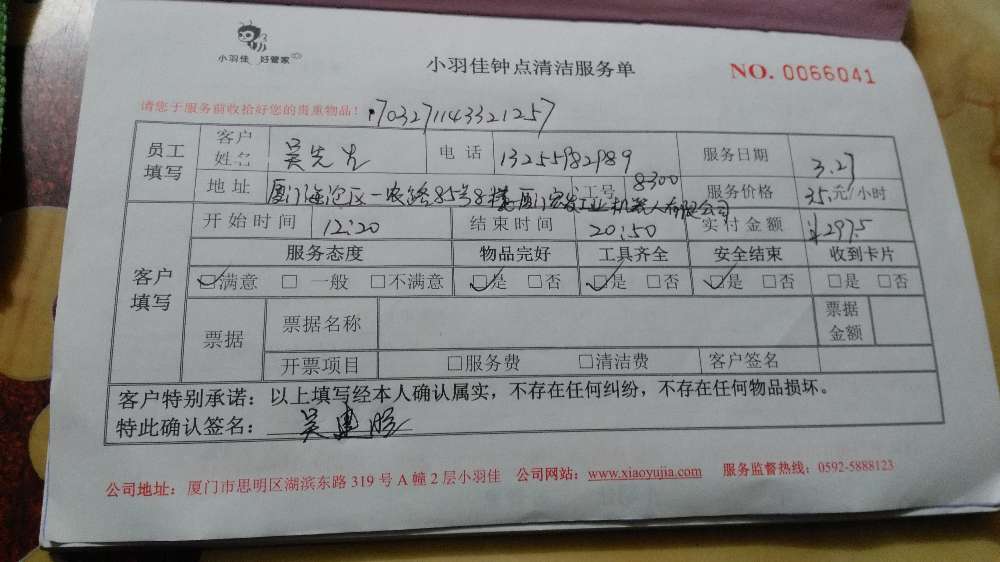 小羽佳 好管家
小羽佳钟点清洁服务单
NO. 0066041
请您于服务前收拾好您的贵重物品！
703271143321257
员工填写 客户姓名 吴先生 电话 13255982989 服务日期 3.27
地址 厦门海沧区一农路85号8楼厦门宏发工业机器人有限公司 工号 8300 服务价格 35元/小时
开始时间 12:20 结束时间 20:50 实付金额 ¥297.5
客户填写 服务态度 物品完好 工具齐全 安全结束 收到卡片
☑满意 □一般 □不满意 ☑是 □否 ☑是 □否 ☑是 □否 □是 □否
票据 票据名称 票据金额
开票项目 □服务费 □清洁费 客户签名
客户特别承诺：以上填写经本人确认属实，不存在任何纠纷，不存在任何物品损坏。
特此确认签名： 吴建
公司地址：厦门市思明区湖滨东路 319 号 A 幢 2 层小羽佳 公司网站：www.xiaoyujia.com 服务监督热线：0592-5888123